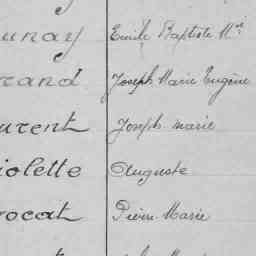 unay Emile Baptiste Mie
rand Joseph Marie Eugène
urent Joseph marie
iolette Auguste
vocat Pierre Marie